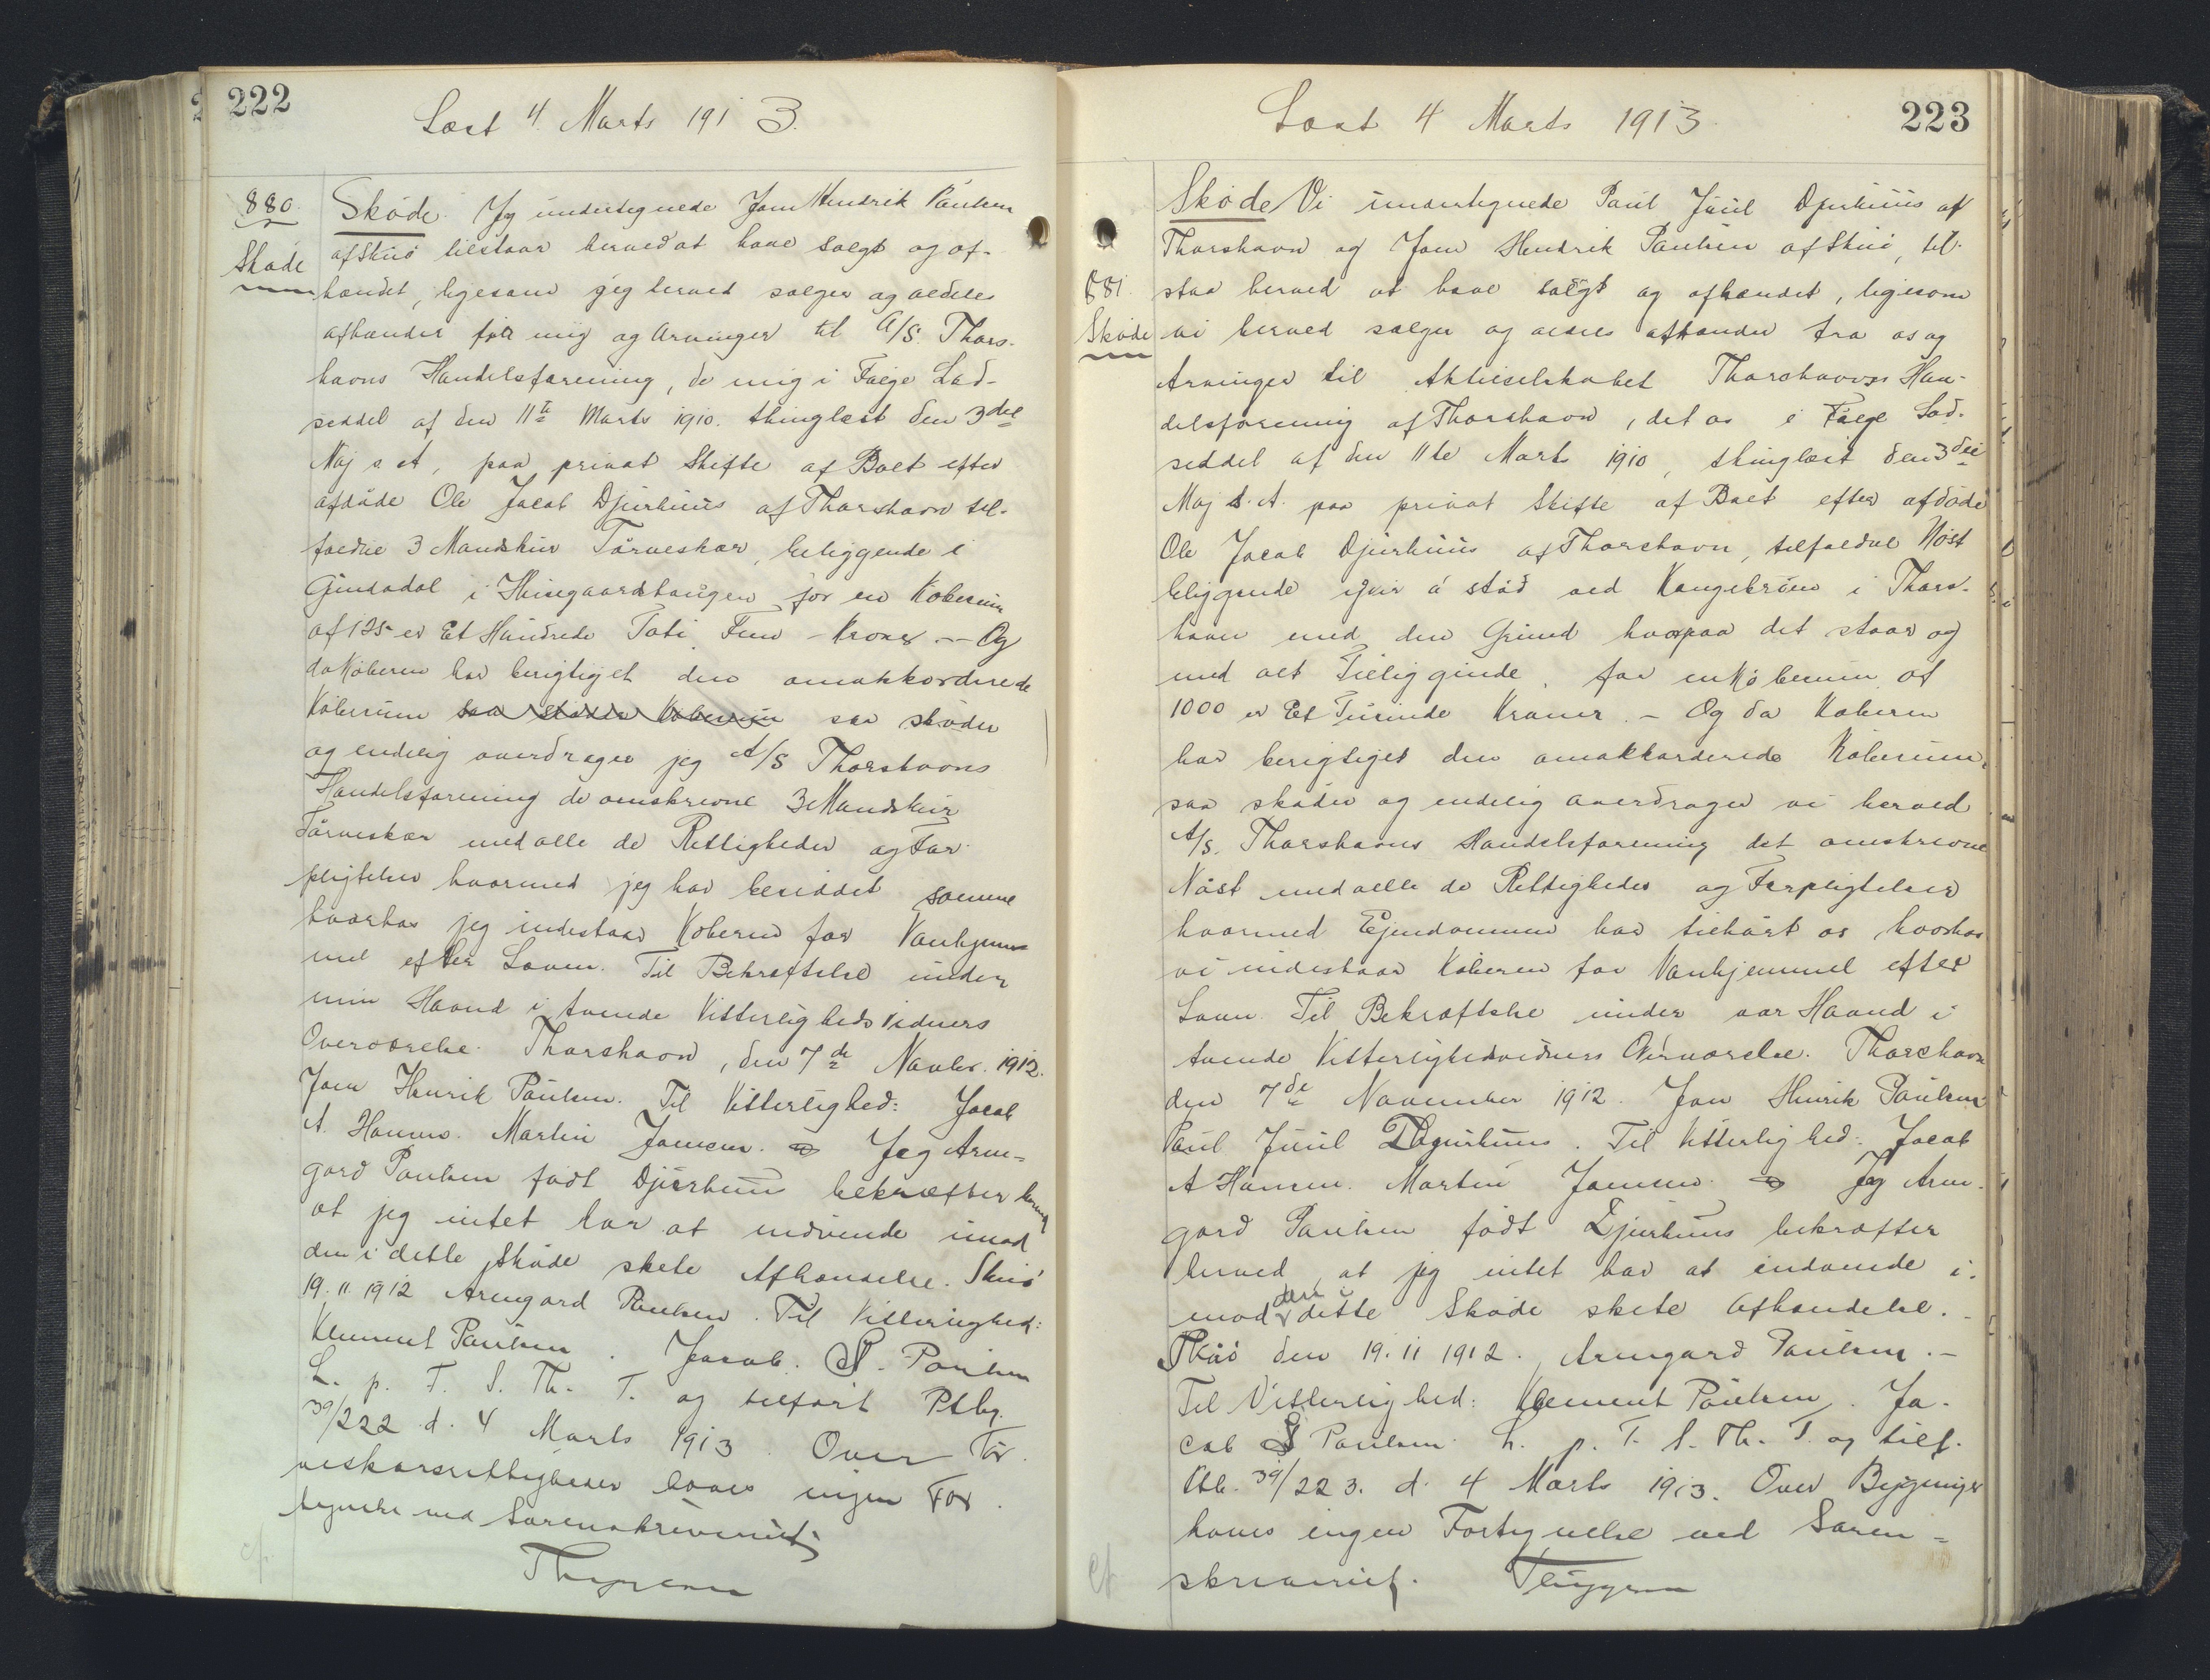 222
Læst 4. Marts 1913.
880.
Skøde
Skøde. Jeg undertegnede Joen Hendrik Paulsen
af Skuø tilstaar herved at have solgt og af-
hændet, ligesom jeg herved sælger og aldeles
afhænder fra mig og Arvinger til A/S. Thors-
havns Handelsforening, de mig i Følge Lod-
seddel af den 11te Marts 1910. thinglæst den 3die
Maj s A, paa privat Skifte af Boet efter
afdøde Ole Jacob Djurhuus af Thorshavn til-
faldne 3 Mandskur Tørveskær, beliggende i
Gindadal i Husegaardshaugen for en Købesum
af 125 er Et Hundrede Toti Fem Kroner — Og
da Køberen har berigtiget den omakkorderede
Købesum saa skøder Købesum saa skøder
og endelig overdrager jeg A/S Thorshavns
Handelsforening de omskrevne 3 Mandskur
Tørveskær med alle de Rettigheder og For-
pligtelser hvormed jeg har besiddet samme
hvorhos jeg indestaar Køberen for Vanhjem-
mel efter Loven. Til Bekræftelse under
min Haand i tvende Vitterligheds Vidners
Overværelse. Thorshavn, den 7de Novbr. 1912.
Joen Henrik Paulsen. Til Vitterlighed: Jacob
A. Hansen. Martin Joensen. Jeg Arm-
gard Paulsen født Djurhuus bekræfter herved
at jeg intet har at indvende imod
den i dette Skøde skete Afhændelse. Skuø
19.11.1912 Armgard Paulsen. Til Vitterlighed:
Klement Paulsen. Jacob. S. Paulsen
L. p. T. S. Th. T. og tilført Ptbg.
39/222 d. 4 Marts 1913. Over Tør-
veskærsrettigheder haves ingen For-
tegnelse ved Sorenskriveriet.
223
Læst 4 Marts 1913.
881.
Skøde
Skøde Vi undertegnede Paul Juul Djurhuus af
Thorshavn og Joen Hendrik Paulsen af Skuø, til-
staa herved at have solgt og afhændet, ligesom
vi herved sælger og aldeles afhænder fra os og
Arvinger til Aktieselskabet Thorshavns Han-
delsforening af Thorshavn, det os i Følge Lod-
seddel af den 11te Marts 1910, thinglæst den 3die
Maj s. A. paa privat Skifte af Boet efter afdøde
Ole Jacob Djurhuus af Thorshavn, tilfaldne Nøst
beliggende yvir á stød ved Kongebroen i Thors-
havn med den Grund hvorpaa det staar og
med alt Tilliggende, for en Købesum af
1000 er Et Tusinde Kroner. — Og da Køberen
har berigtiget den omakkorderede Købesum,
saa skøder og endelig overdrager vi herved
A/S. Thorshavns Handelsforening det omskrevne
Nøst med alle de Rettigheder og Forpligtelser
hvormed Ejendommen har tilhørt os hvorhos
vi indestaar Køberen for Vanhjemmel efter
Loven. Til Bekræftelse under vor Haand i
tvende Vitterlighedsvidners Overværelse. Thorshavn
den 7de November 1912. Joen Henrik Paulsen
Paul Juul Djurhuus. Til Vitterlighed: Jacob
A Hansen. Martin Joensen. Jeg Arm-
gard Paulsen født Djurhuus bekræfter
herved, at jeg intet har at indvende i-
mod den i dette Skøde skete Afhændelse. -
Skuø den 19.11 1912. Armgard Paulsen. -
Til Vitterlighed: Klement Paulsen. Ja-
cob S Paulsen. L. p. T. S. Th. T. og tilf.
Ptb. 39/223. d. 4 Marts 1913. Over Bygninger
haves ingen Fortegnelse ved Soren-
skriveriet.